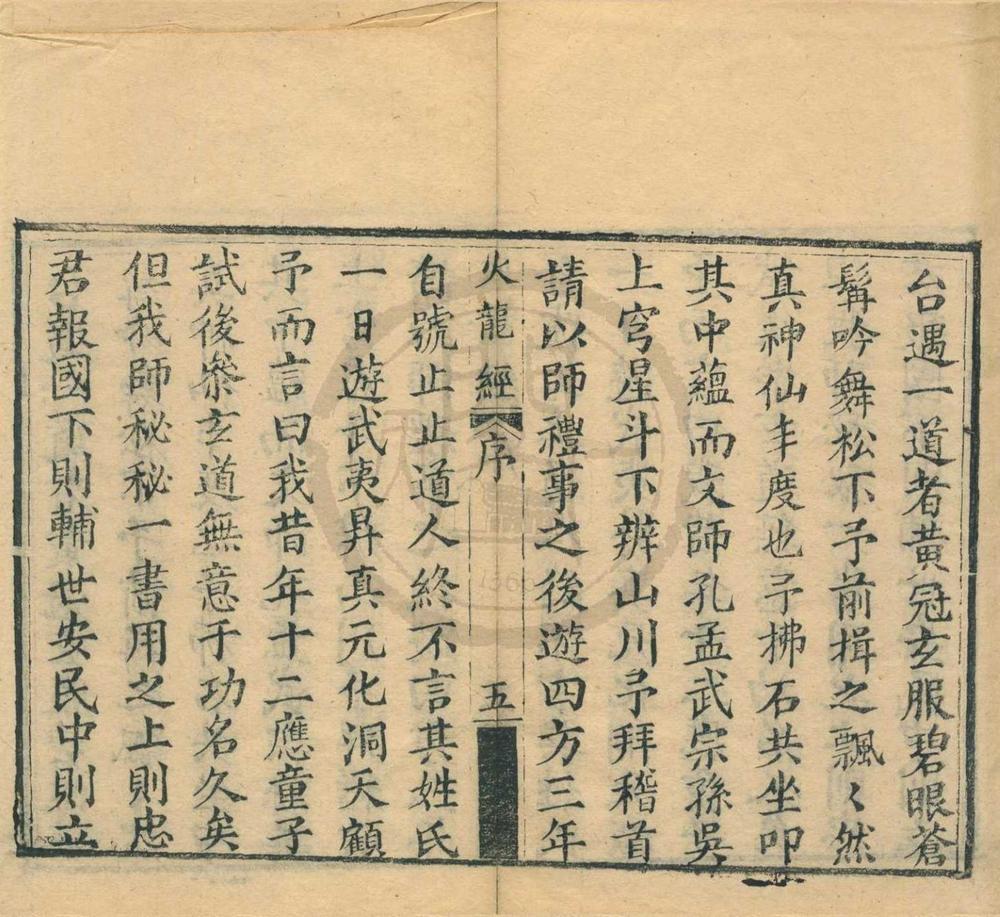 台遇一道者黄冠玄服碧眼蒼
髯吟舞松下予前揖之飄〻然
真神仙年度也予拂石共坐叩
其中蘊而文師孔孟武宗孫吳
上穹星斗下辨山川予拜稽首
請以師禮事之後遊四方三年
火龍經 序 五
自號止止道人終不言其姓氏
一日遊武夷昇真元化洞天顧
予而言曰我昔年十二應童子
試後叅玄道無意于功名久矣
但我師秘秘一書用之上則忠
君報國下則輔世安民中則立